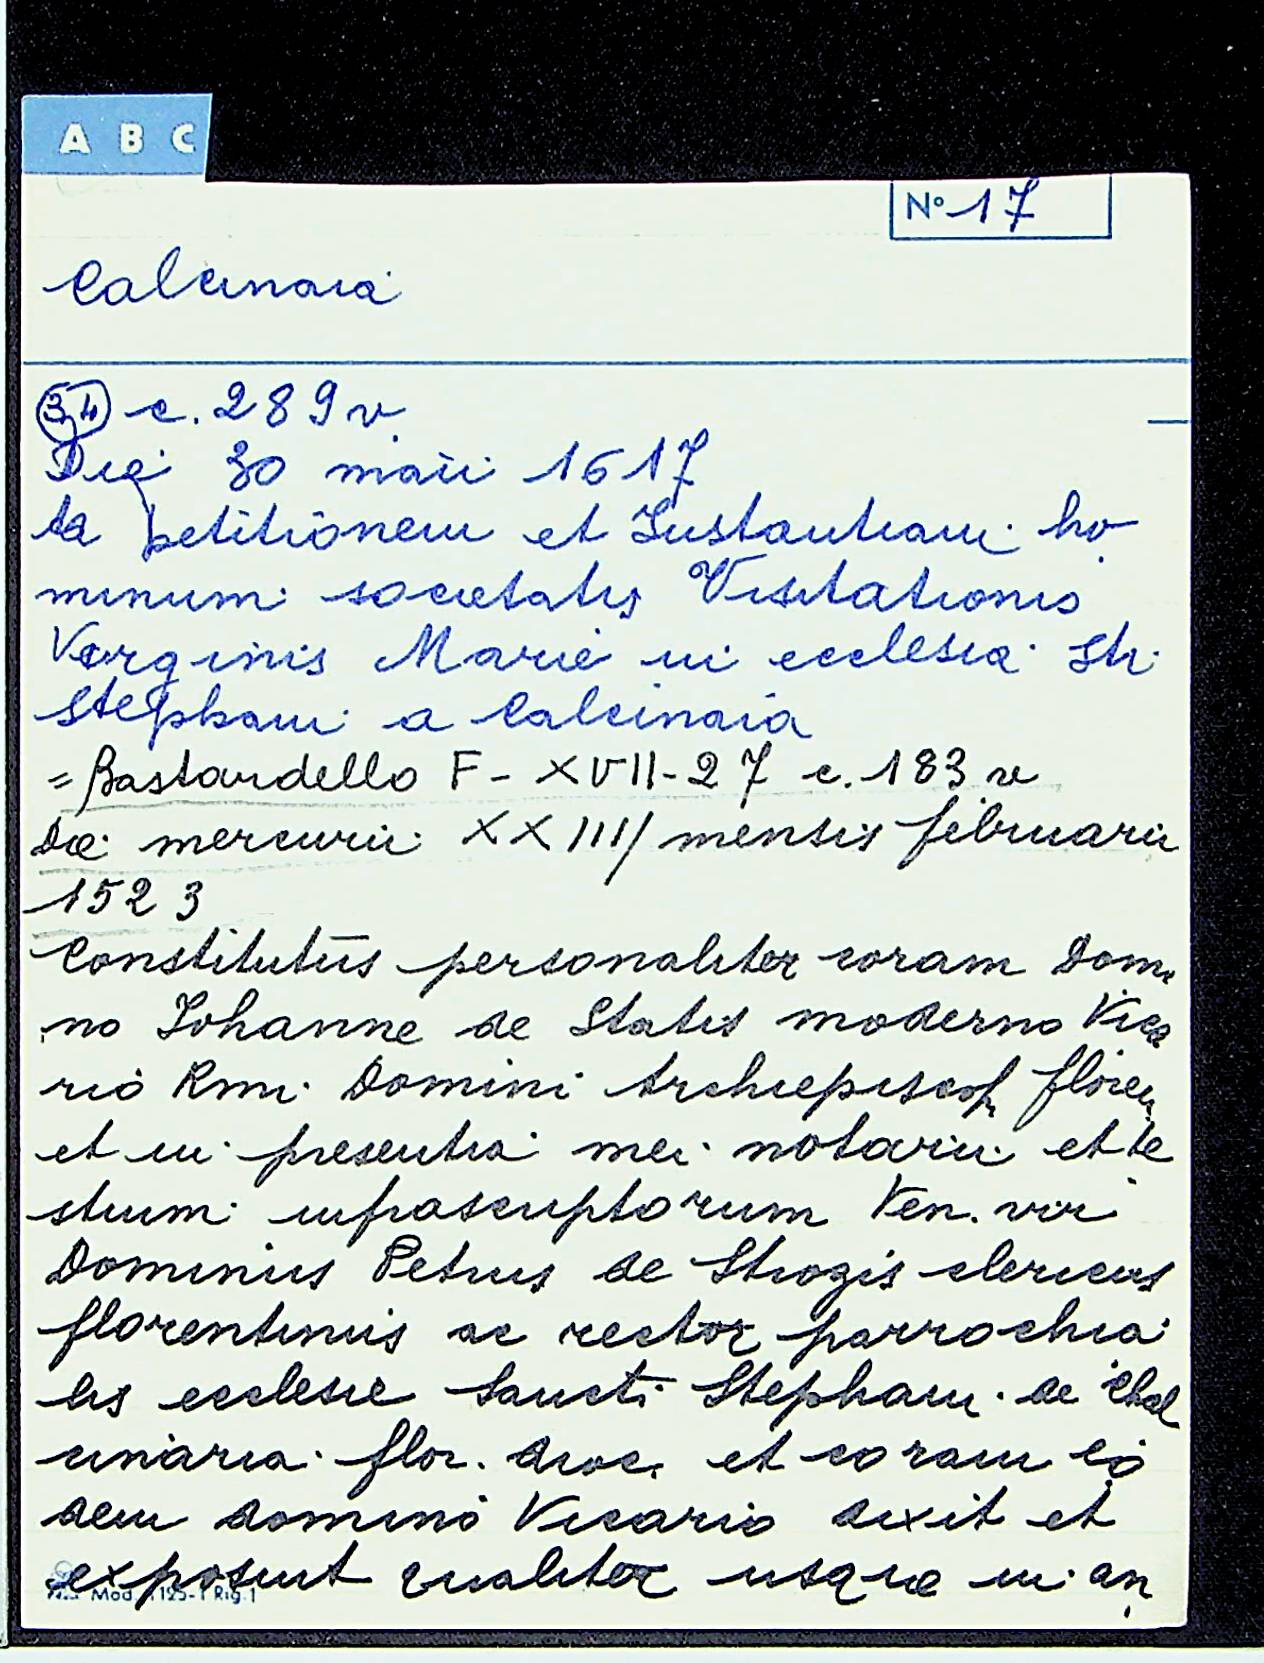 A B C
N° 17
Calcinaia
34 c. 289 v.
Die 30 maii 1617
ta petitionem et Instantiam ho
minum societatis Visitationis
Verginis Marie in ecclesia Sti
Stephani a Calcinaia
= Bastardello F - XVII - 27 c. 183 v
Die mercurii XXIII/ mensis februarii
1523
Constitutus personaliter coram Domi
no Johanne de Statis moderno Vica
rio Rmi Domini Archiepiscop floren
et in presentia mei notarii et te
stium infrascriptorum Ven. viri
Dominus Petrus de Strozis clericus
florentinus ac rector parrochia
lis ecclesie Sancti Stephani de Chal
cinaria flor. dioc. et coram eo
dem domino Vicario dixit et
exposuit qualiter usque in an
Mod. 125-1 Rig. 1